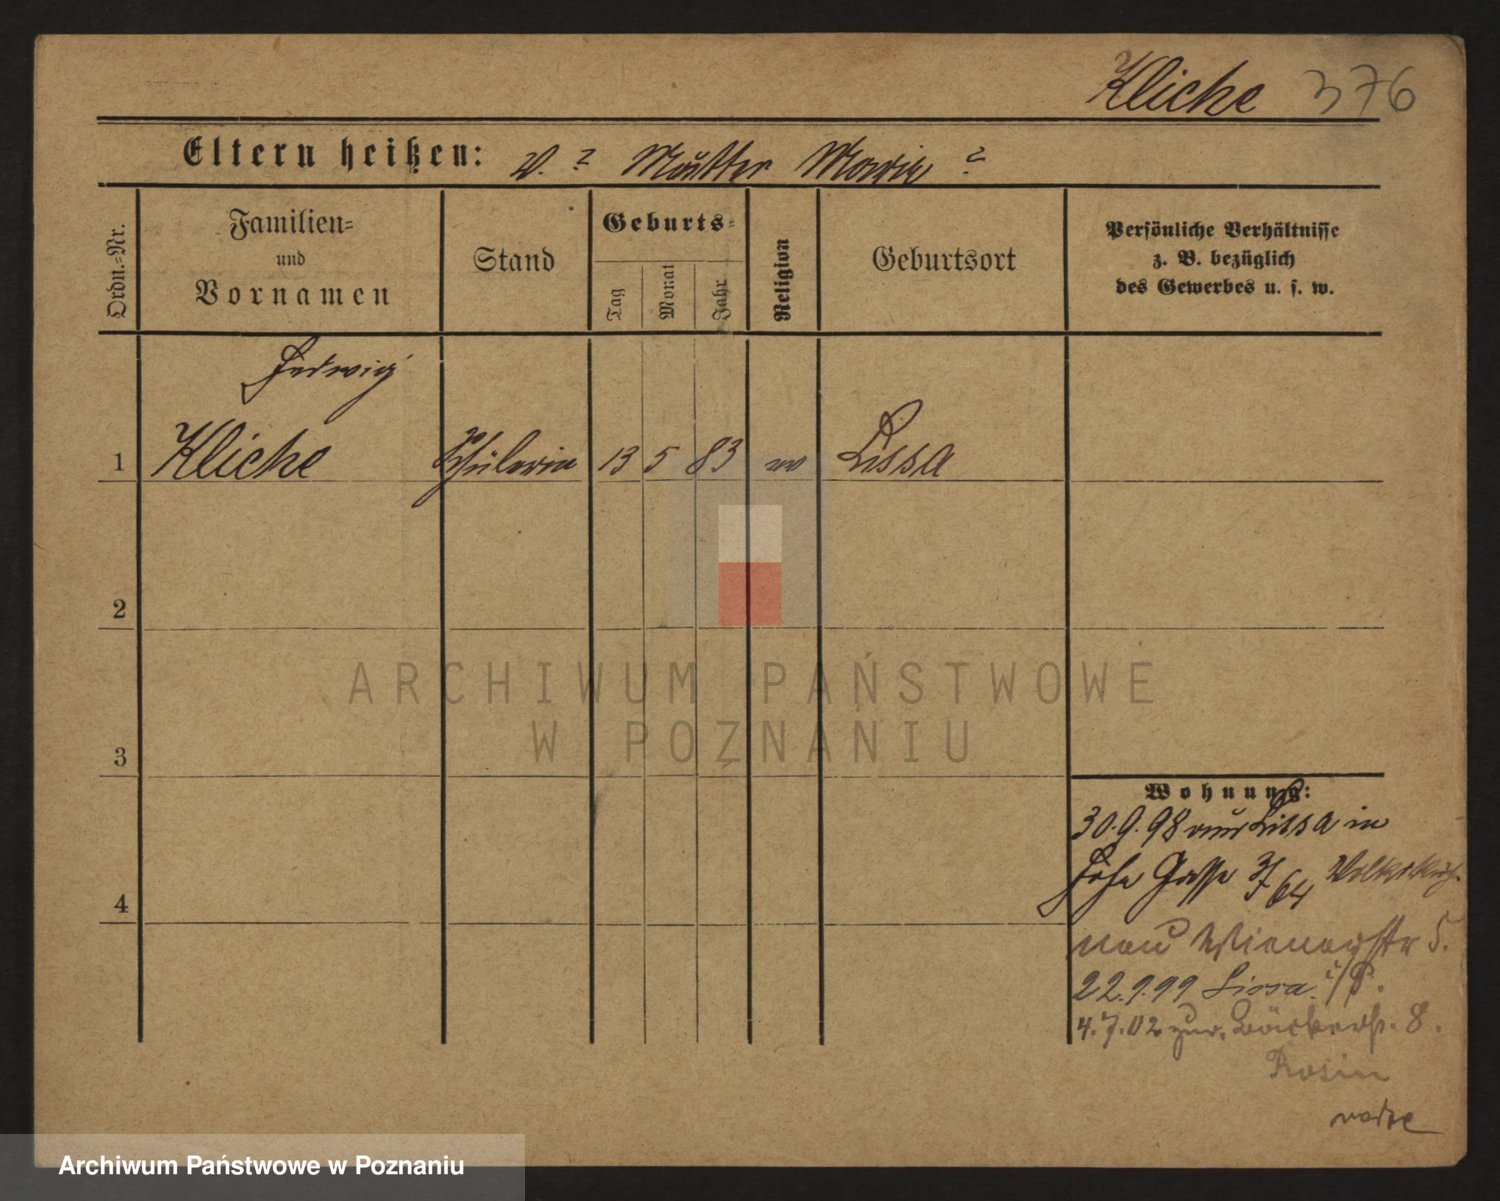 Kliche 376
Eltern heißen: V. ? Mutter Maria ?
Ordn.-Nr.
Familien-
und
Vornamen
Stand
Geburts-
Tag
Monat
Jahr
Religion
Geburtsort
Persönliche Verhältnisse
z. B. bezüglich
des Gewerbes u. s. w.
Hedwig
1 Kliche Schülerin 13 5 83 ev Lissa
2
3
4
ARCHIWUM PAŃSTWOWE
W POZNANIU
Wohnung:
30.9.98 aus Lissa in
Hohe Gasse 3/64
neu Wienerstr 5.
22.9.99 Lissa i/P.
4.7.02 zur. Bäckerstr. 8.
Rosin
Archiwum Państwowe w Poznaniu